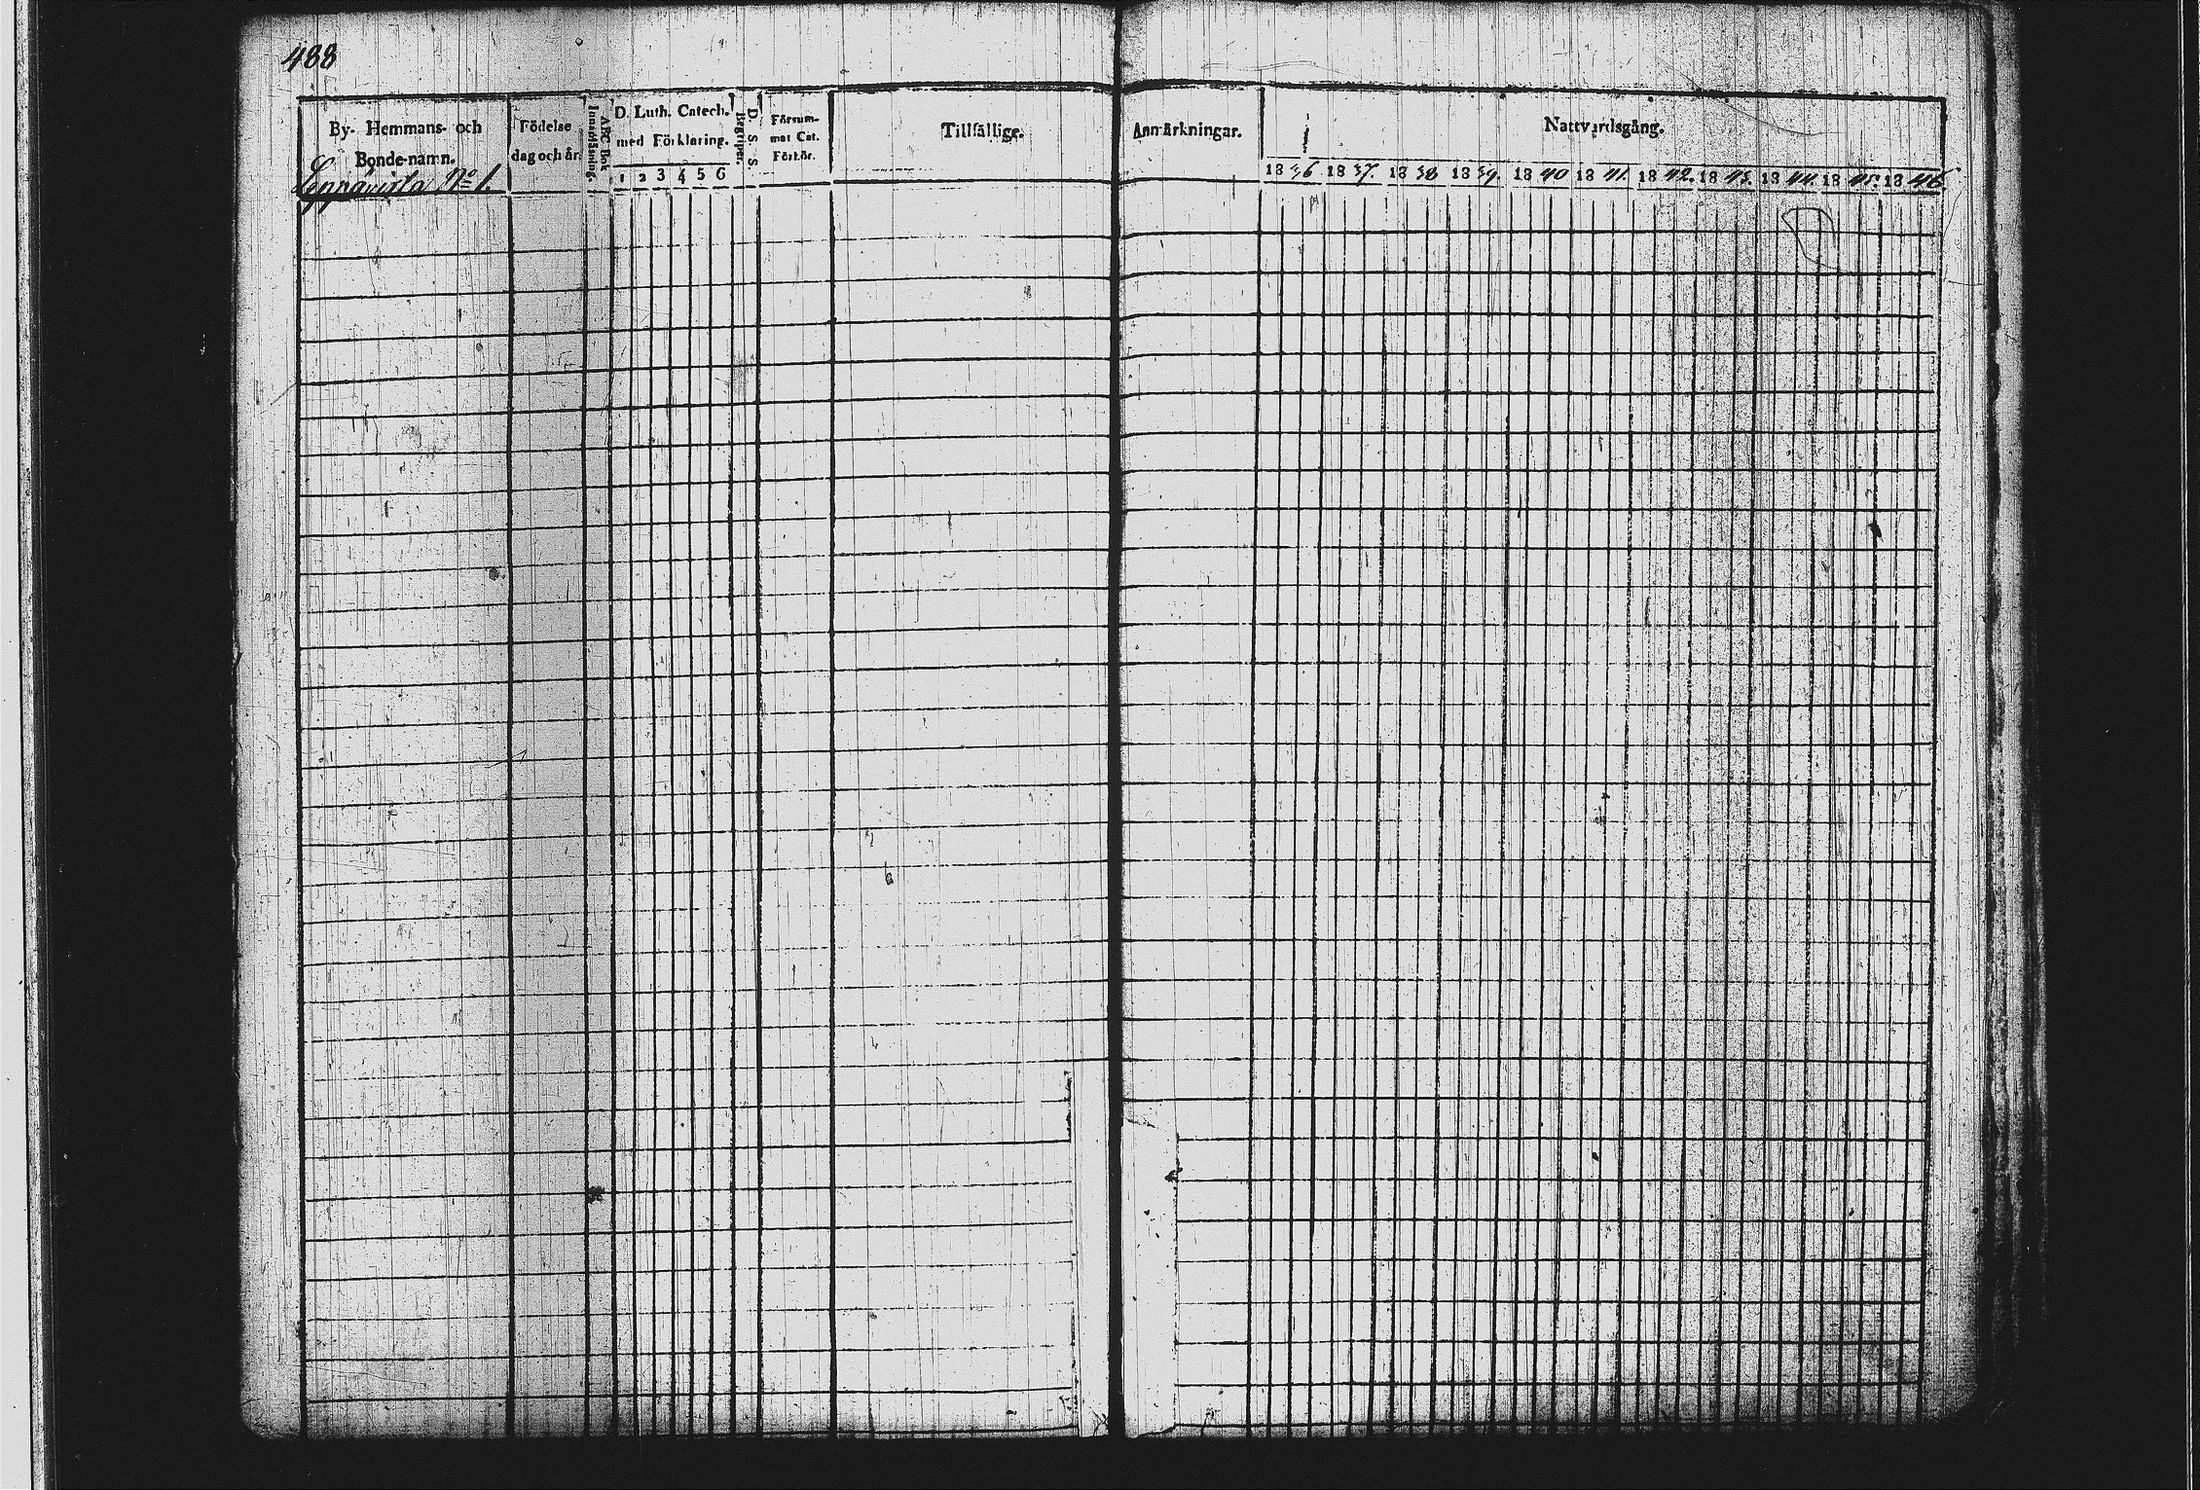 488
By- Hemmans- och
Bonde-namn.
Leppävirta No 1.
Födelse
dag och år.
ABC Bok
Innanläsning.
D. Luth. Catech.
med Förklaring.
1 2 3 4 5 6
Begriper.
D. S. S
Försum-
mat Cat.
Förhör.
Tillfällige.
Anmärkningar.
Nattvardsgång.
1836. 1837. 1838 1839. 1840 1841. 1842. 1843. 1844. 1845. 1846